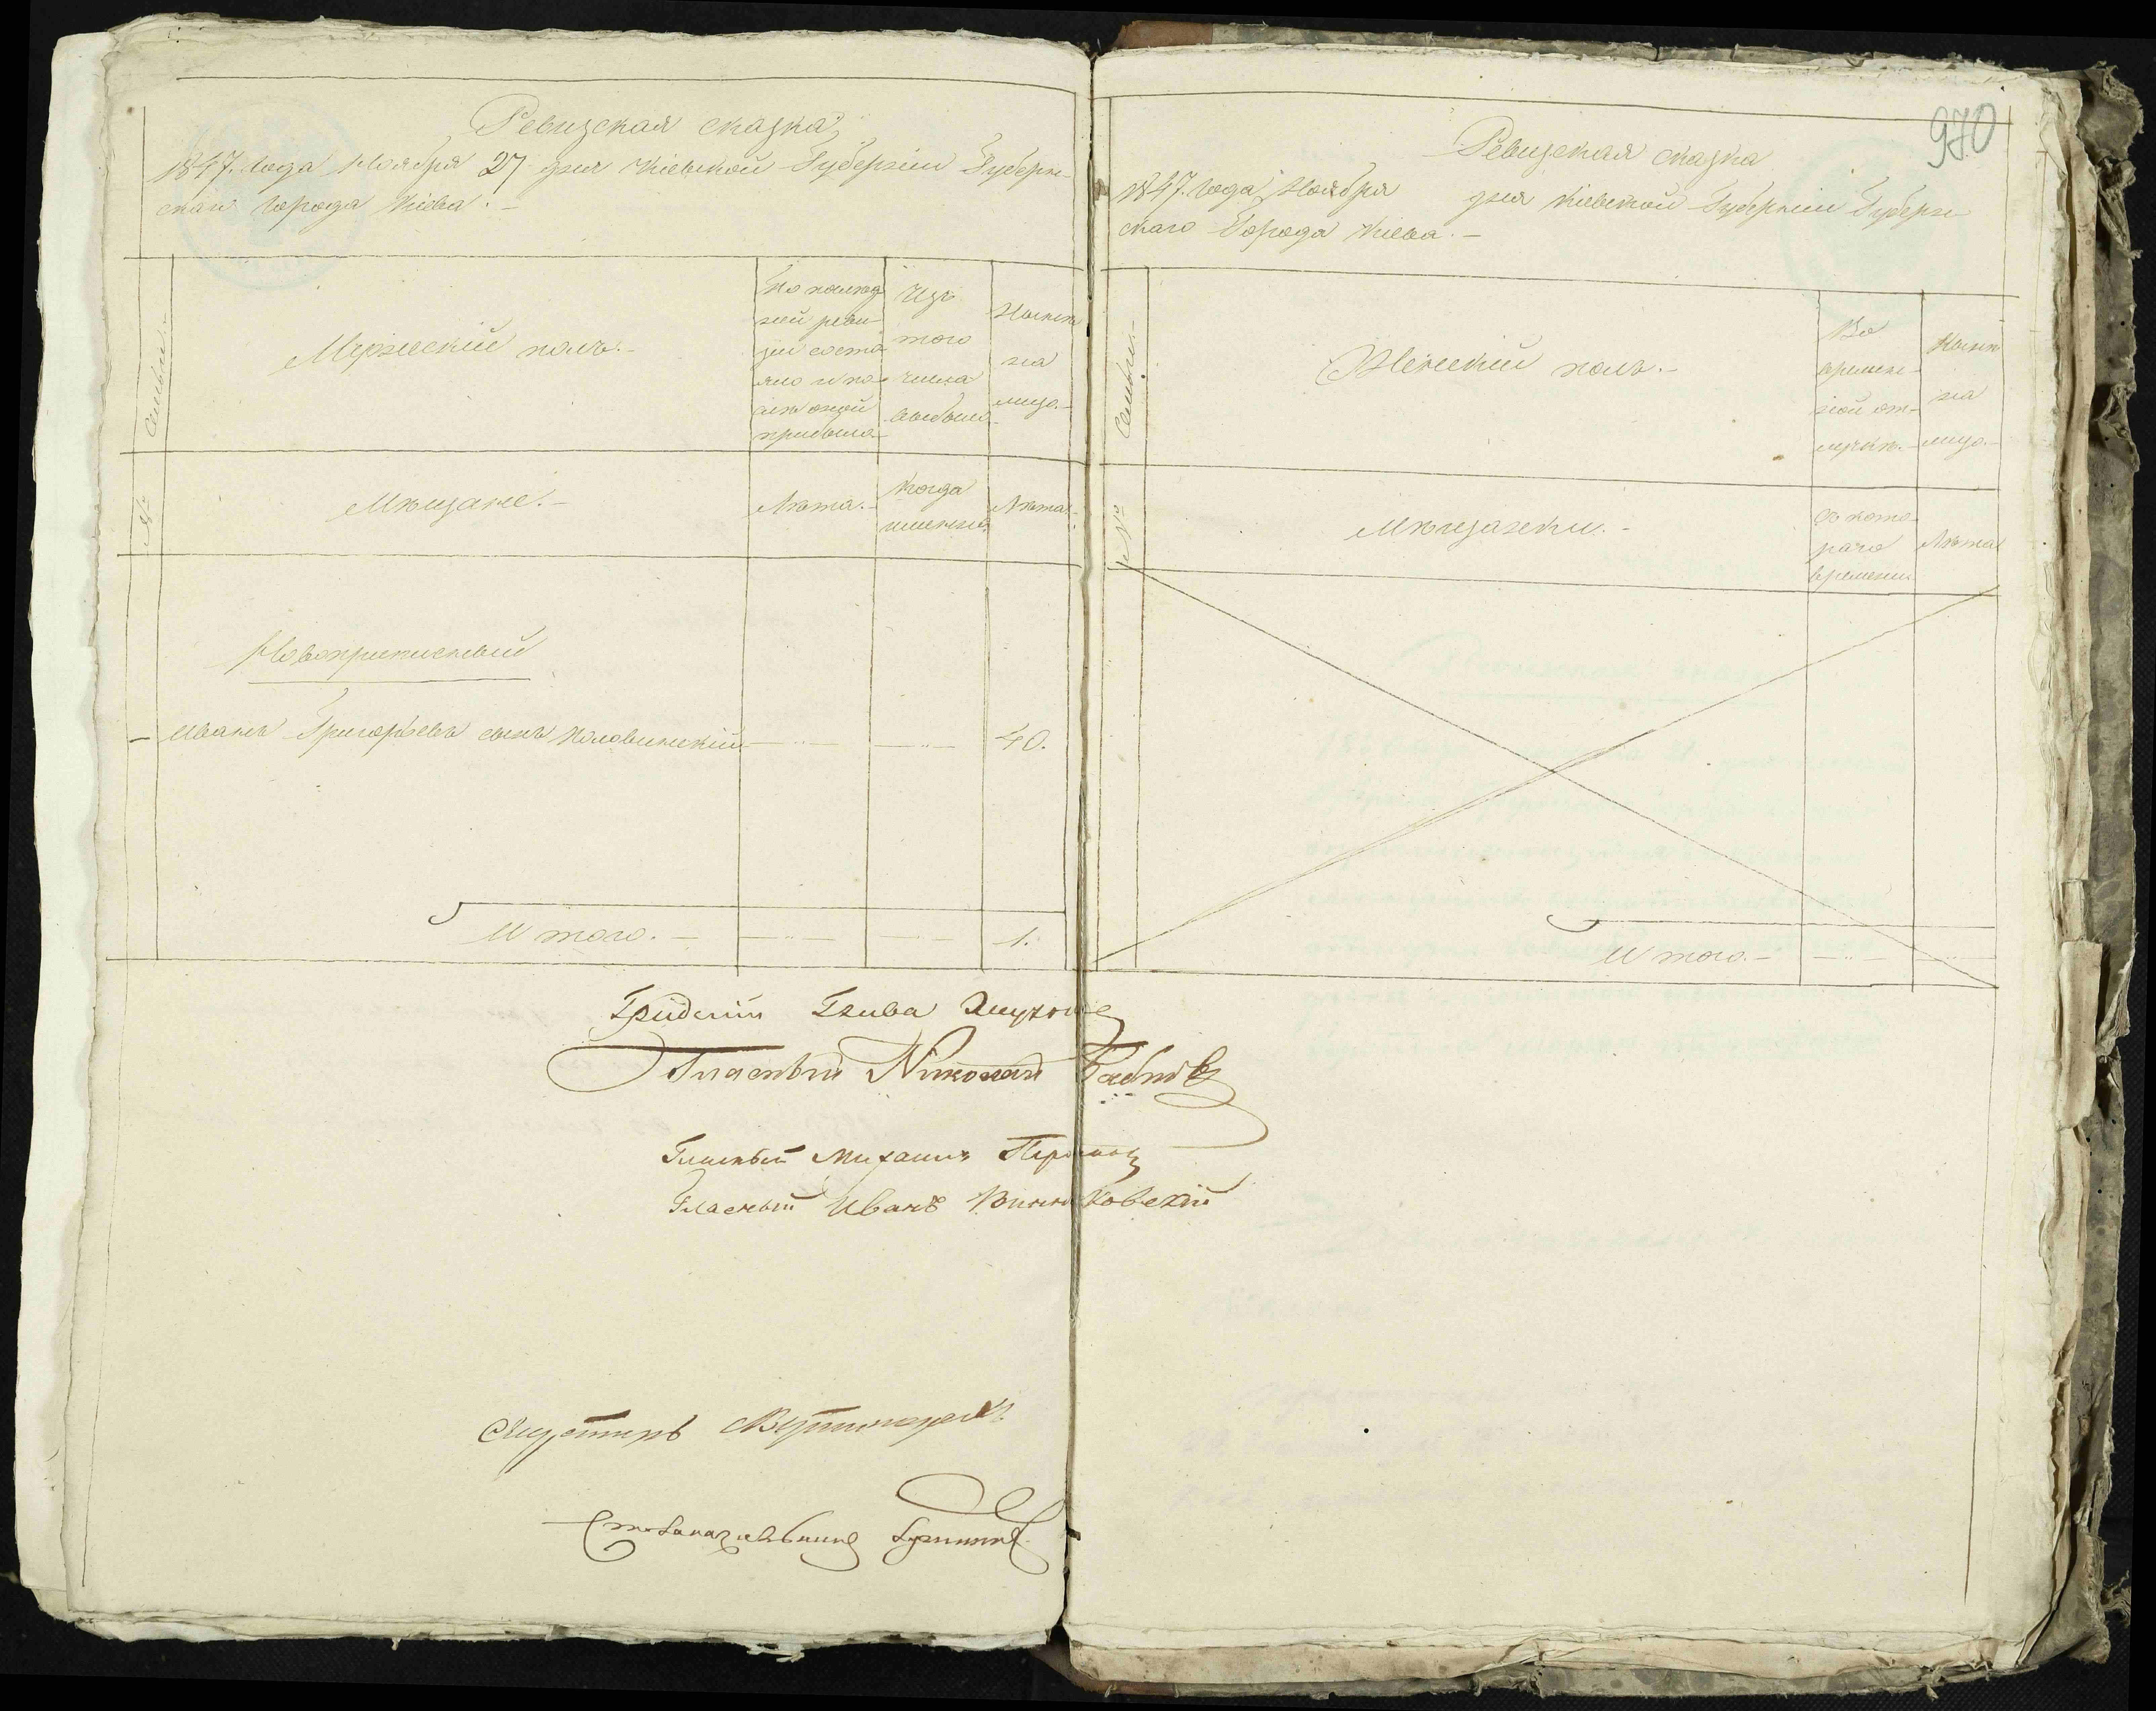 Ревизская сказка
1847. года Ноября 27 дня Кіевской Губерніи Губерн-
скаго города Кіева. –
№ Семьи. –
Мужескій полъ. –
По послѣд
ней реви-
зіи состо-
яло и по-
слѣ оной
прибыло.
Изъ
того
числа
выбыло.
Нынѣ
на
лицо. –
Мѣщане. –
Лѣта. –
Когда
именно.
Лѣта. –
Новоприписный
– Иванъ Григорьевъ сынъ Половинскій – 40.
И того. – 1.
Глава
Гласный Николай
Гласный Михаилъ
Гласный Иванъ Винниковскій
970
Ревизская сказка
1847. года Ноября дня Кіевской Губерніи Губерн-
скаго Города Кіева. –
№ Семьи. –
Женскій полъ. –
Во
времен-
ной от-
лучкѣ. –
Нынѣ
на
лицо. –
Мѣщанки. –
Съ кото-
раго
времени
Лѣта
И того. –